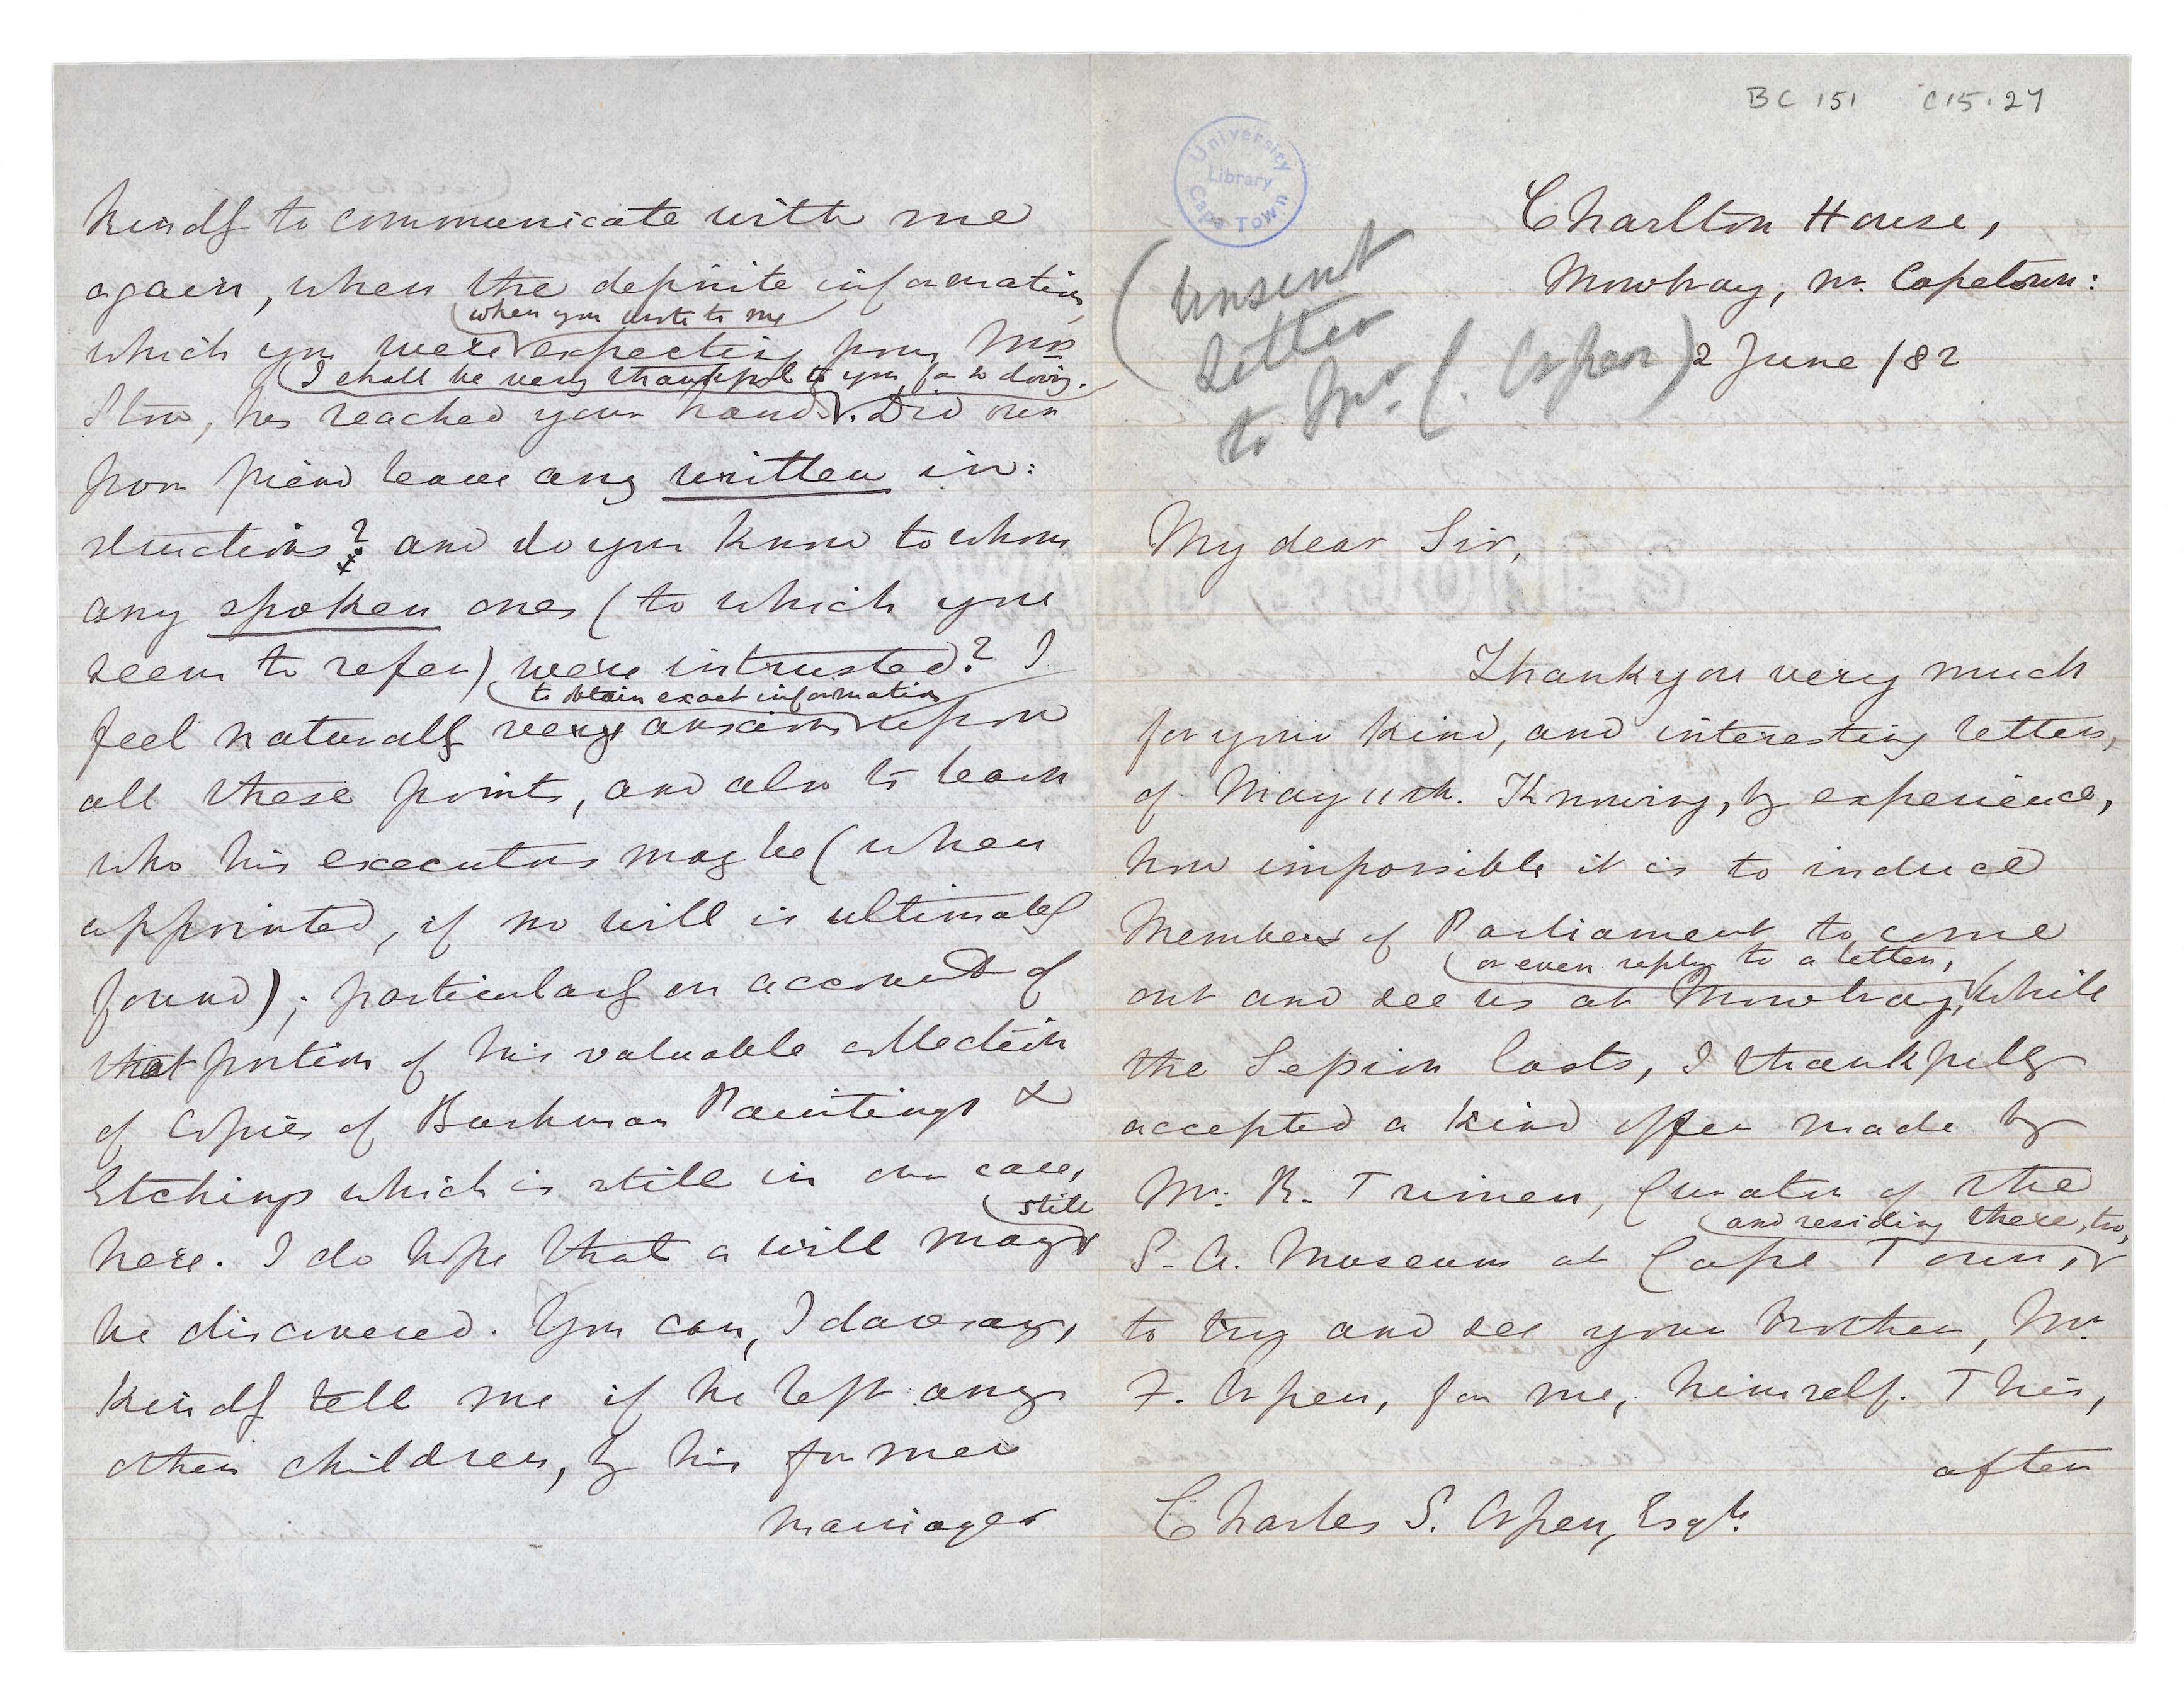 BC 151 C15.27
University
Library
Cape Town
(Unsent
Letter
to Mr. C. Orpen)
Charlton House,
Mowbray, nr. Capetown:
2 June /82
My dear Sir,
Thank you very much
for your kind, and interesting letter,
of May 11th. Knowing, by experience,
how impossible it is to induce
Members of Parliament to come
or even reply to a letter,
out and see us at Mowbray, while
the Session lasts, I thankfully
accepted a kind offer made by
Mr. R. Trimen, Curator of the
and residing there, too,
S. A. Museum at Cape Town,
to try and see your brother, Mr.
F. Orpen, for me, himself. This,
after
Charles S. Orpen, Esqre.
kindly to communicate with me
again, when the definite information,
when you wrote to me
which you were expecting from Mrs
I shall be very thankful to you for so doing.
Stow, has reached your hands. Did our
poor friend leave any written in:
structions? and do you know to whom
any spoken ones (to which you
seem to refer) were intrusted? I
to obtain exact information
feel naturally very anxious upon
all these points, and also to learn
who his executors may be (when
appointed, if no will is ultimately
found); particularly on account of
that portion of his valuable collection
of copies of Bushman Paintings &
Etchings which is still in our care,
still
here. I do hope that a will may
be discovered. You can, I daresay,
kindly tell me if he left any
other children, by his former
marriage